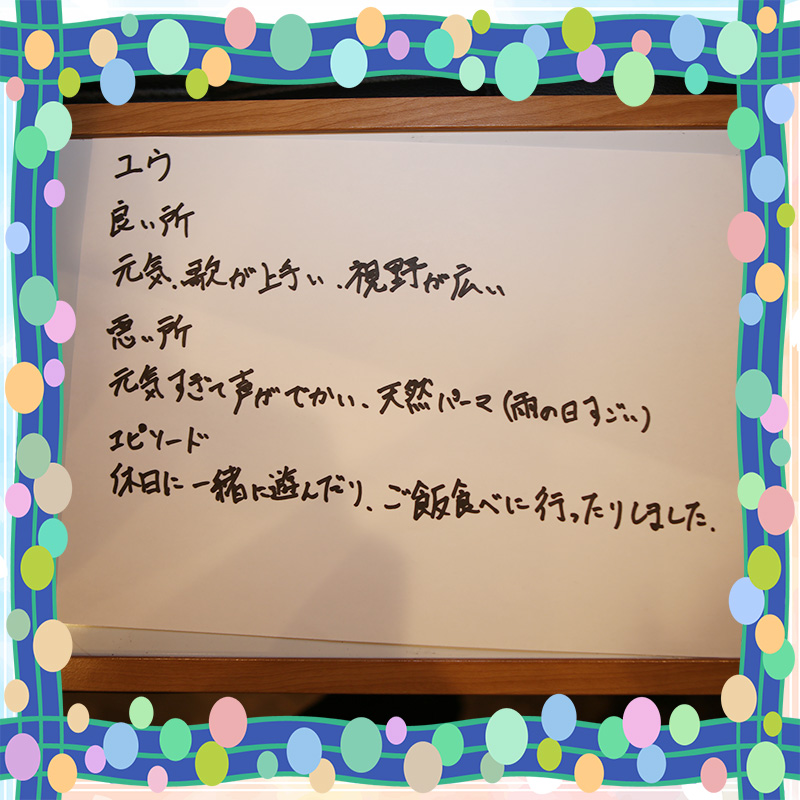 ユウ
良い所
元気、歌が上手い、視野が広い
悪い所
元気すぎて声がでかい、天然パーマ(雨の日すごい)
エピソード
休日に一緒に遊んだり、ご飯食べに行ったりしました。